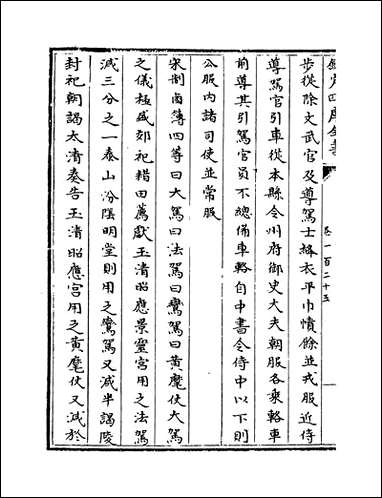 欽定四庫全書
卷一百二十五
步從除文武官及導駕士絳衣平巾幘餘並戎服近侍
導駕官引車從本縣令州府御史大夫朝服各乘輅車
前導其引駕官員不總備車輅自中書令侍中以下則
公服内諸司使並常服
宋制鹵簿四等曰大駕曰法駕曰鸞駕曰黄麾仗大駕
之儀極盛郊祀耤田薦獻玉清昭應景靈宫用之法駕
減三分之一泰山汾陰明堂則用之鸞駕又減半謁陵
封祀朝謁太清奏告玉清昭應宫用之黄麾仗又減於